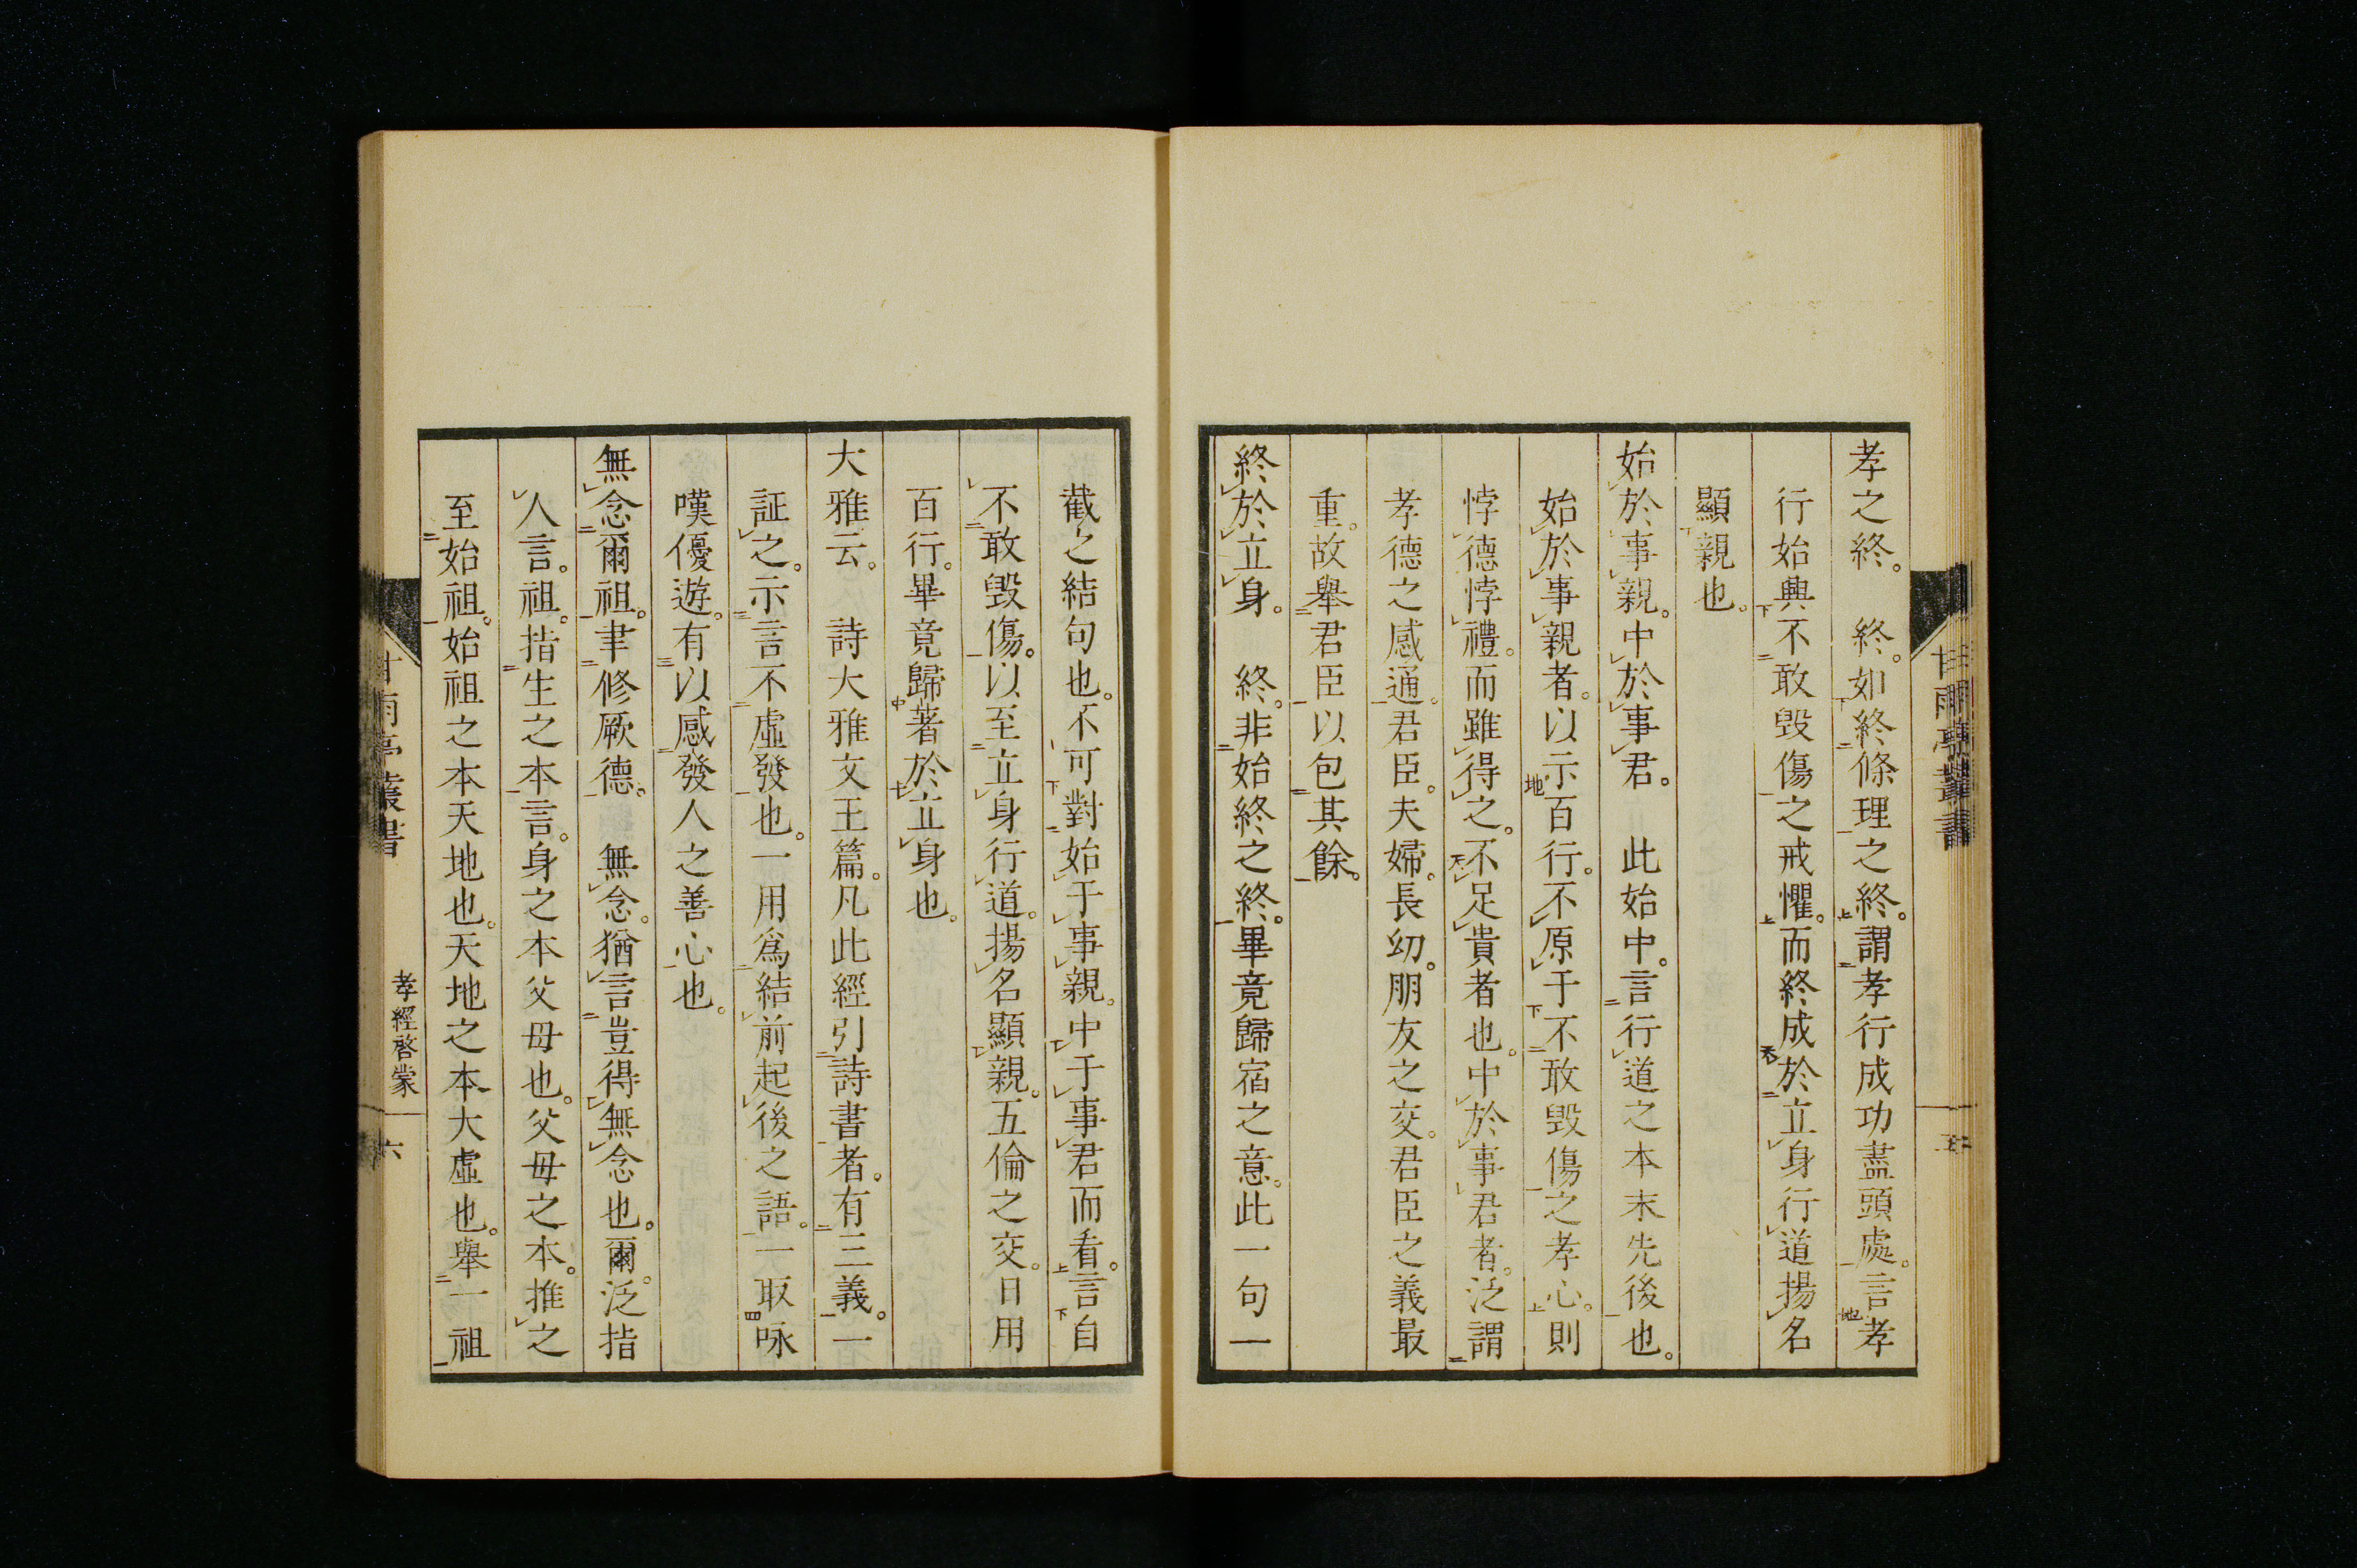 孝之終。　終。如終條理之終。謂孝行成功盡頭處。言孝
行始興不敢毀傷之戒懼。而終成於立身行道揚名
顯親也。
始於事親。中於事君。　此始中。言行道之本末先後也。
始於事親者。以示百行。不原于不敢毀傷之孝心。則
悖德悖禮。而雖得之。不足貴者也。中於事君者。泛謂
孝德之感通。君臣。夫婦。長幼。朋友之交。君臣之義最
重。故舉君臣以包其餘。
終於立身。　終。非始終之終。畢竟歸宿之意。此一句一
甘雨亭叢書
五
截之結句也。不可對始于事親。中于事君而看。言自
不敢毀傷。以至立身行道。揚名顯親。五倫之交。日用
百行。畢竟歸著於立身也。
大雅云。　詩大雅文王篇。凡此經引詩書者。有三義。一
証之。示言不虛發也。一用爲結前起後之語。一取咏
嘆優遊。有以感發人之善心也。
無念爾祖。聿修厥德。　無念。猶言豈得無念也。爾。泛指
人言。祖。指生之本言。身之本父母也。父母之本。推之
至始祖。始祖之本天地也。天地之本大虛也。舉一祖
甘雨亭叢書
孝經啓蒙
六